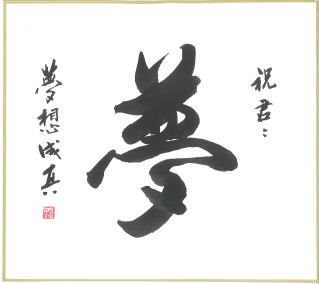 祝君：
夢
夢想成真